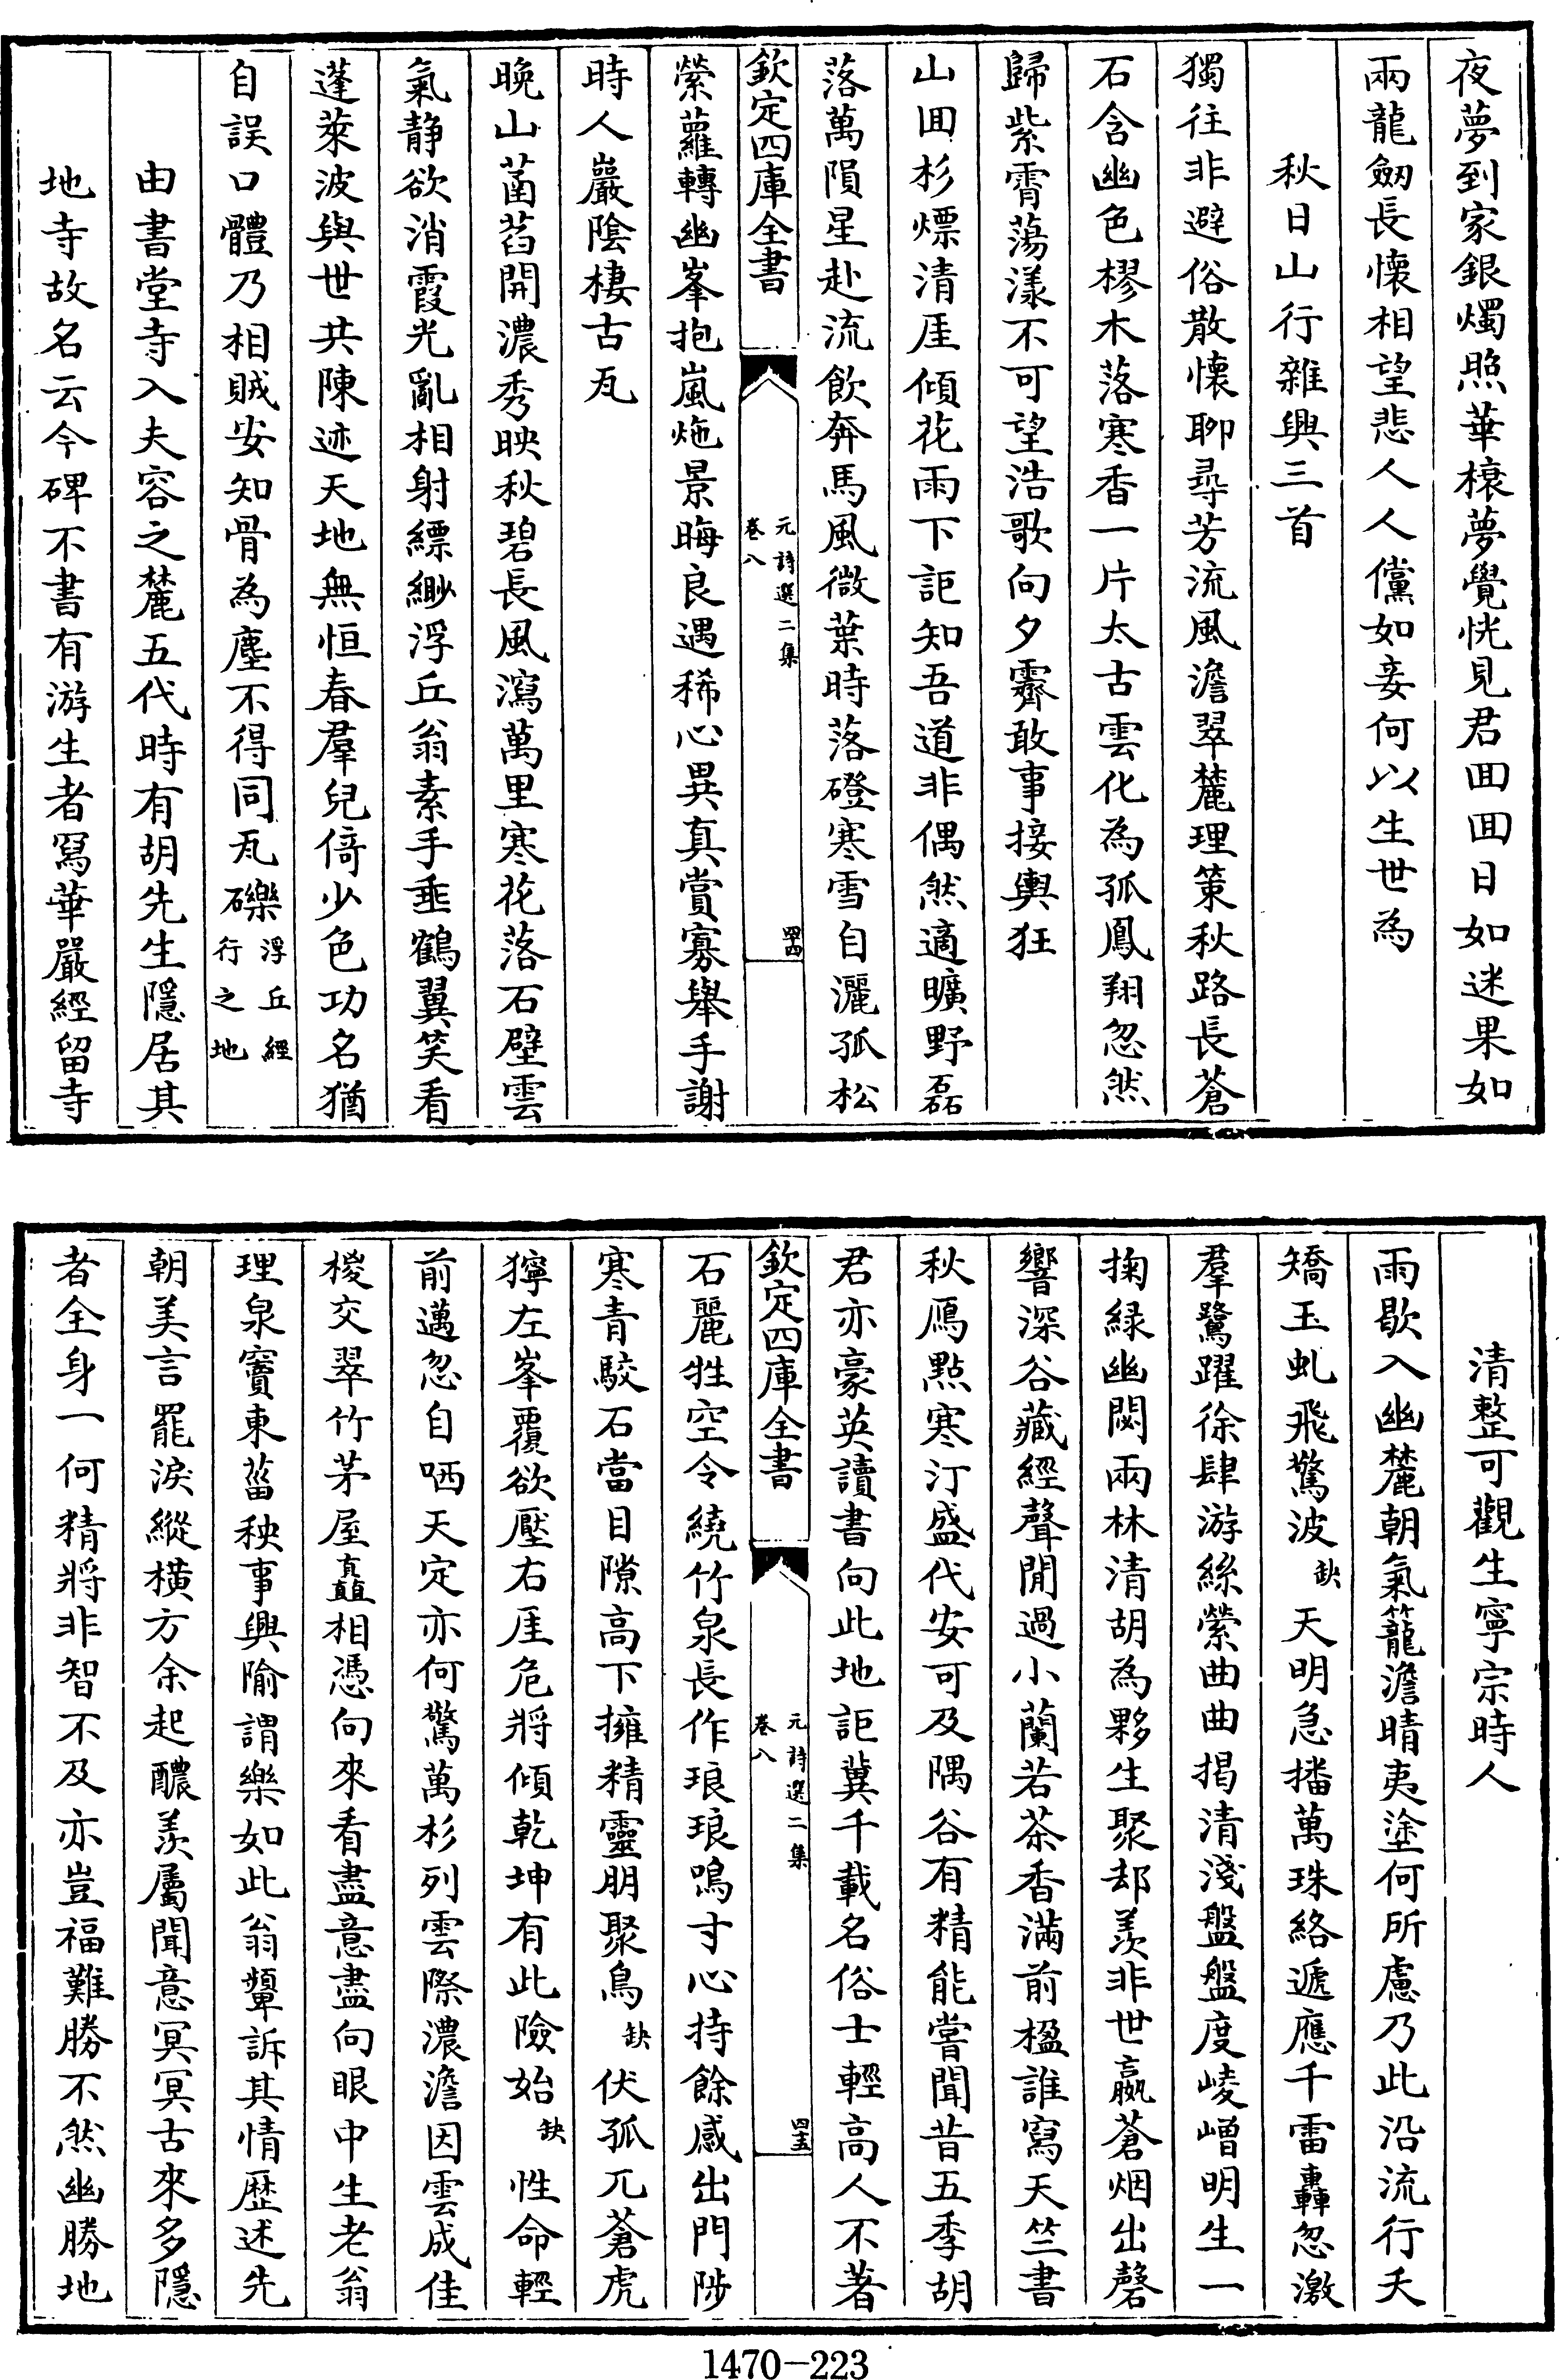 夜夢到家銀燭照華榱夢覺恍見君囬囬日如迷果如
兩龍劒長懷相望悲人人儻如妾何以生世為
秋日山行雜興三首
獨往非避俗散懷聊尋芳流風澹翠麓理策秋路長蒼
石含幽色樛木落寒香一片太古雲化為孤鳳翔忽然
歸紫霄蕩漾不可望浩歌向夕霽敢事接輿狂
山囬杉熛清厓傾花雨下詎知吾道非偶然適曠野磊
落萬隕星赴流飲奔馬風微葉時落磴寒雪自灑孤松
欽定四庫全書
元詩選二集
卷八
四十四
縈蘿轉幽峯抱嵐灺景晦良遇稀心異真賞寡舉手謝
時人巖陰棲古瓦
晚山菡萏開濃秀映秋碧長風瀉萬里寒花落石壁雲
氣静欲消霞光亂相射縹緲浮丘翁素手垂鶴翼笑看
蓬萊波與世共陳迹天地無恒春羣兒倚少色功名猶
自誤口體乃相賊安知骨為塵不得同瓦礫浮丘經行之地
由書堂寺入夫容之麓五代時有胡先生隱居其
地寺故名云今碑不書有游生者冩華嚴經留寺
清整可觀生寧宗時人
雨歇入幽麓朝氣籠澹晴夷塗何所慮乃此沿流行夭
矯玉虬飛驚波缺天明急播萬珠絡遞應千雷轟忽激
羣鷺躍徐肆游絲縈曲曲揭清淺盤盤度崚嶒明生一
掬緑幽閟兩林清胡為夥生聚却羨非世嬴蒼烟出磬
響深谷藏經聲閒過小蘭若茶香滿前楹誰寫天竺書
秋鴈點寒汀盛代安可及隅谷有精能嘗聞昔五季胡
君亦豪英讀書向此地詎冀千載名俗士輕高人不著
欽定四庫全書
元詩選二集
卷八
四十五
石麗牲空令繞竹泉長作琅琅鳴寸心持餘感出門陟
寒青駮石當日隙高下擁精靈朋聚鳥缺伏孤兀蒼虎
獰左峯覆欲壓右厓危將傾乾坤有此險始缺性命輕
前邁忽自哂天定亦何驚萬杉列雲際濃澹因雲成佳
椶交翠竹茅屋矗相憑向來看盡意盡向眼中生老翁
理泉竇東菑秧事興隃謂樂如此翁顰訴其情歷述先
朝美言罷淚縱横方余起醲羨屬聞意冥冥古來多隱
者全身一何精將非智不及亦豈福難勝不然幽勝地
1470-223